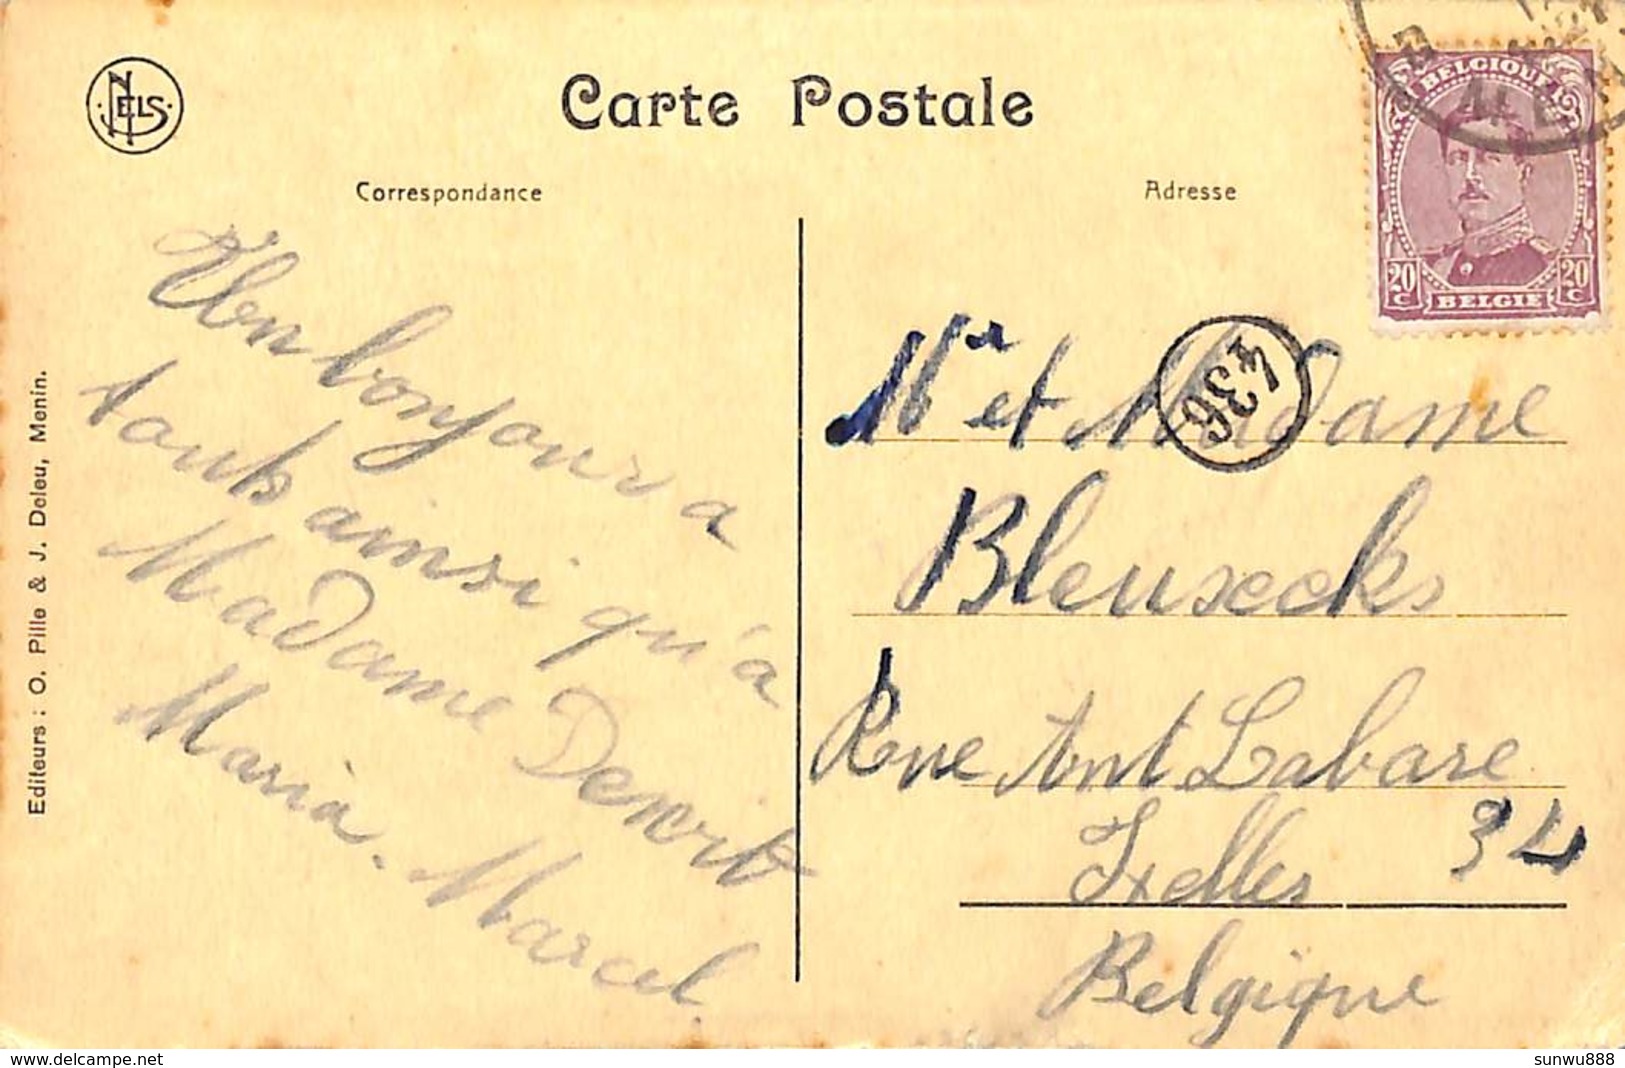 NELS
Carte Postale
Correspondance
Adresse
BELGIQUE
20 C
20 C
BELGIE
436
Editeurs : O. Pille & J. Deleu, Menin.
Un bonjour a
tous ainsi qu'à
Madame Denrit
Maria. Marcel.
Mr et Madame
Bleuxecks
Rue Ant Labare
34
Ixelles
Belgique
sunwu888
www.delcampe.net